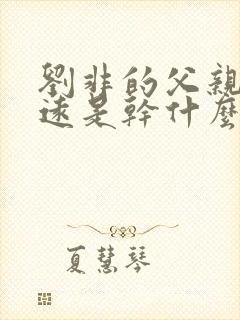 劉非的父親
遠是幹什麼
夏慧琴